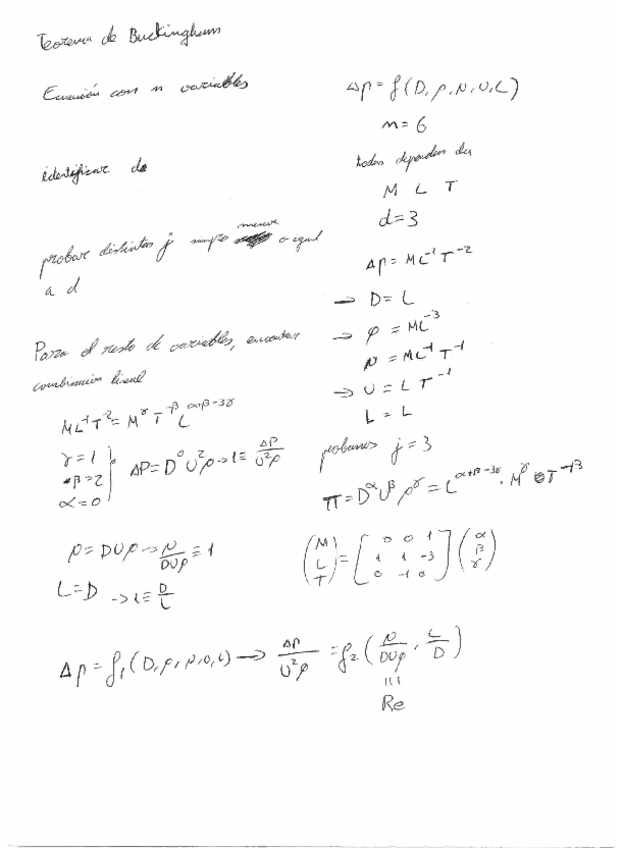 Teorema de Buckingham
Ecuación con n variables
Δp = f(D, ρ, N, U, L)
n = 6
identificar d
todas dependen de
M L T
d = 3
probar distintas j siempre menor o igual
a d
Δp = ML⁻¹T⁻²
→ D = L
→ ρ = ML⁻³
μ = ML⁻¹T⁻¹
→ U = L T⁻¹
L = L
Para el resto de variables, encontrar
combinación lineal
ML⁻¹T⁻² = M^γ T^-β L^α+β-3γ
γ = 1
β = 2
α = 0
ΔP = D⁰U²ρ → 1 ≡ ΔP/U²ρ
probamos j = 3
π = D^α U^β ρ^γ = L^α+β-3γ · M^γ T^-β
μ = DUρ → μ/DUρ ≡ 1
L = D → 1 ≡ D/L
(M L T) = [0 0 1 1 1 -3 0 -1 0] (α β γ)
Δp = f₁(D, ρ, μ, U, L) → ΔP/U²ρ = f₂(μ/DUρ, L/D)
Re